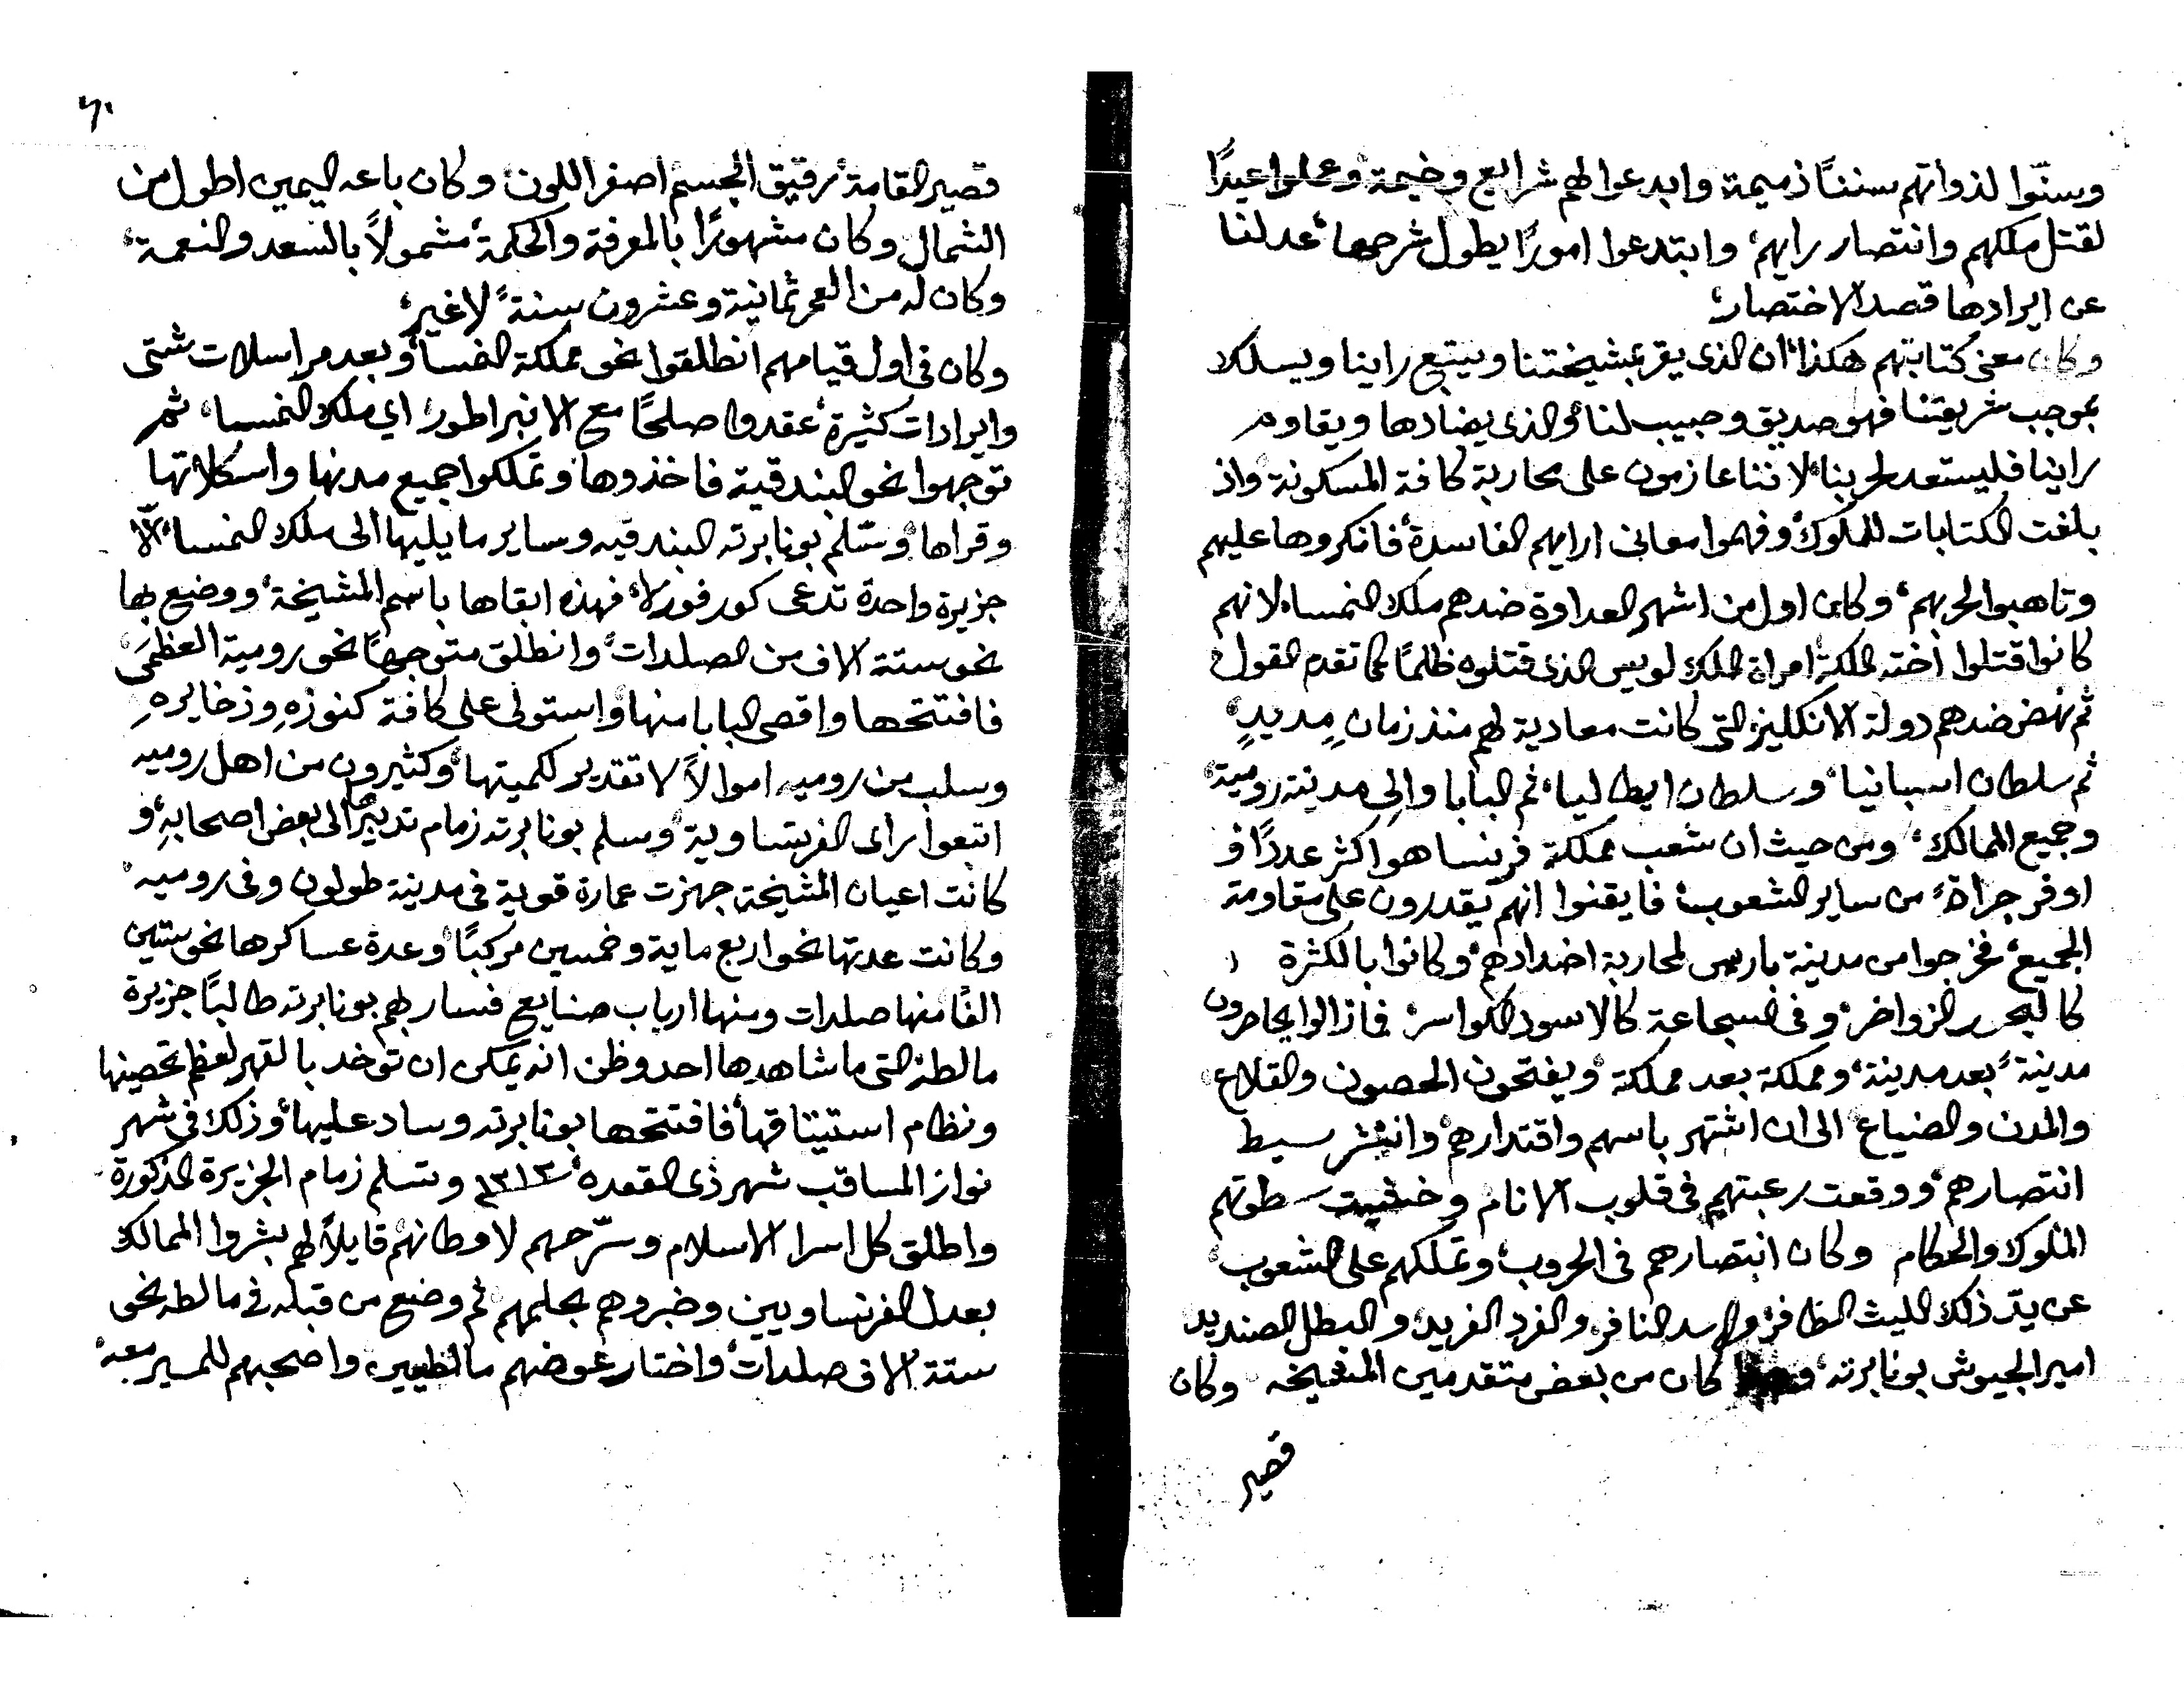 وسنّوا لذواتهم سننًا ذميمة وابدعوا لهم شرايع وخيمة وعملوا عيدًا
لقتل ملكهم وانتصار رايهم، وابتدعوا امورًا يطول شرحها، عدلنا
عن ايرادها قصد الاختصار،
وكان معنى كتابتهم هكذا، ان الذى يقر بمشيختنا ويتبع راينا ويسلك
بموجب شريعتنا فهو صديق وحبيب لنا، والذى يضادها ويقاوم
راينا فليستعد لحربنا، لاننا عازمون على محاربة كافة المسكونة، واذ
بلغت الكتابات للملوك، وفهموا معانى ارايهم الفاسدة، فانكروها عليهم
وتاهبوا لحربهم، وكان اول من اشهر العداوة ضدهم ملك النمسا، لانهم
كانوا قتلوا اخته الملكة، امراة الملك لويس الذى قتلوه ظلمًا كما تقدم القول،
ثم نهض ضدهم دولة الانكليز التى كانت معادية لهم منذ زمانٍ مديدٍ،
ثم سلطان اسبانيا، وسلطان ايطاليا، ثم البابا والى مدينة رومية،
وجميع الممالك، ومن حيث ان شعب مملكة فرنسا هو اكثر عددًا و
اوفر جراةً، من ساير الشعوب، فايقنوا انهم يقدرون على مقاومة
الجميع، فخرجوا من مدينة باريس لمحاربة اضدادهم، وكانوا بالكثرة
كالبحر الزواخر، وفى السجاعة كالاسود الكواسر، فمازالوا يحاصرون
مدينةً بعد مدينة، ومملكة بعد مملكة، ويفتحون الحصون والقلاع،
والمدن والضياع، الى ان اشتهر باسهم واقتدارهم، وانتشر سيط
انتصارهم، ووقعت رعبتهم فى قلوب الانام وخشيت سطوتهم
الملوك والحكام وكان انتصارهم فى الحروب، وتملكهم على الشعوب،
عن يدّ ذلك الليث الظافر، والاسد النافر، والفرد الفريد، والبطل الصنديد
امير الجيوش بونابرته، كان من بعض متقدمين المشيخه وكان
قصير
قصير القامة، رقيق الجسم، اصفر اللون، وكان باعه اليمين اطول من
الشمال، وكان مشهورًا بالمعرفة والحكمة، مشمولاً بالسعد والنعمة،
وكان له من العمر ثمانية وعشرون سنةً لاغير،
وكان فى اول قيامهم انطلقوا نحو مملكة النمسا، وبعد مراسلات شتى
وايرادات كثيرة، عقدوا صلحًا مع الانبراطور، اي ملك النمسا، ثم
توجهوا نحو البندقية، فاخذوها، وتملكوا جميع مدنها واسكلاتها
وقراها، وسّلم بونابرته البندقيه وساير ما يليها الى ملك النمسا، الّا
جزيرة واحدة تدعى كورفورلا، فهذه ابقاها باسم المشيخة، ووضع بها
نحو ستة الاف من الصلدات، وانطلق متوجهًا نحو رومية العظمى
فافتتحها واقصى البابا منها، واستولى على كافة كنوزهِ وذخايرهِ
وسلب من روميه اموالاً لا تقدير لكميتها، وكثيرون من اهل روميه
اتبعوا راى الفرنساوية، وسلم بونابرته زمام تدبيرها الى بعض اصحابهِ، و
كانت اعيان المشيخة جهزت عمارة قوية فى مدينة طولون وفى روميه
وكانت عدتها نحو اربع ماية وخمسين مركبًا وعدة عساكرها نحو ستين
الفًا منها صلدات ومنها ارباب صنايع، فسار بهم بونابرته طالبًا جزيرة
مالطة، التى ما شاهدها احد وظن انه يمكن ان توخد بالقهر لعظم تحصينها
ونظام استيثاقها، فافتتحها بونابرته وساد عليها، وذلك فى شهر
نواز المساقب شهر ذى القعده، ١٢١٢ وتسلم زمام الجزيرة المذكورة
واطلق كل اسرا الاسلام وسرّحهم لاوطانهم، قايلاً لهم، بشروا الممالك
بعدل الفرنساويين، وخبروهم بحلمهم، ثم وضع من قبله فى مالطه نحو
ستة الاف صلدات، واختار عوضهم مالطيين، واصحبهم للمسير معه،